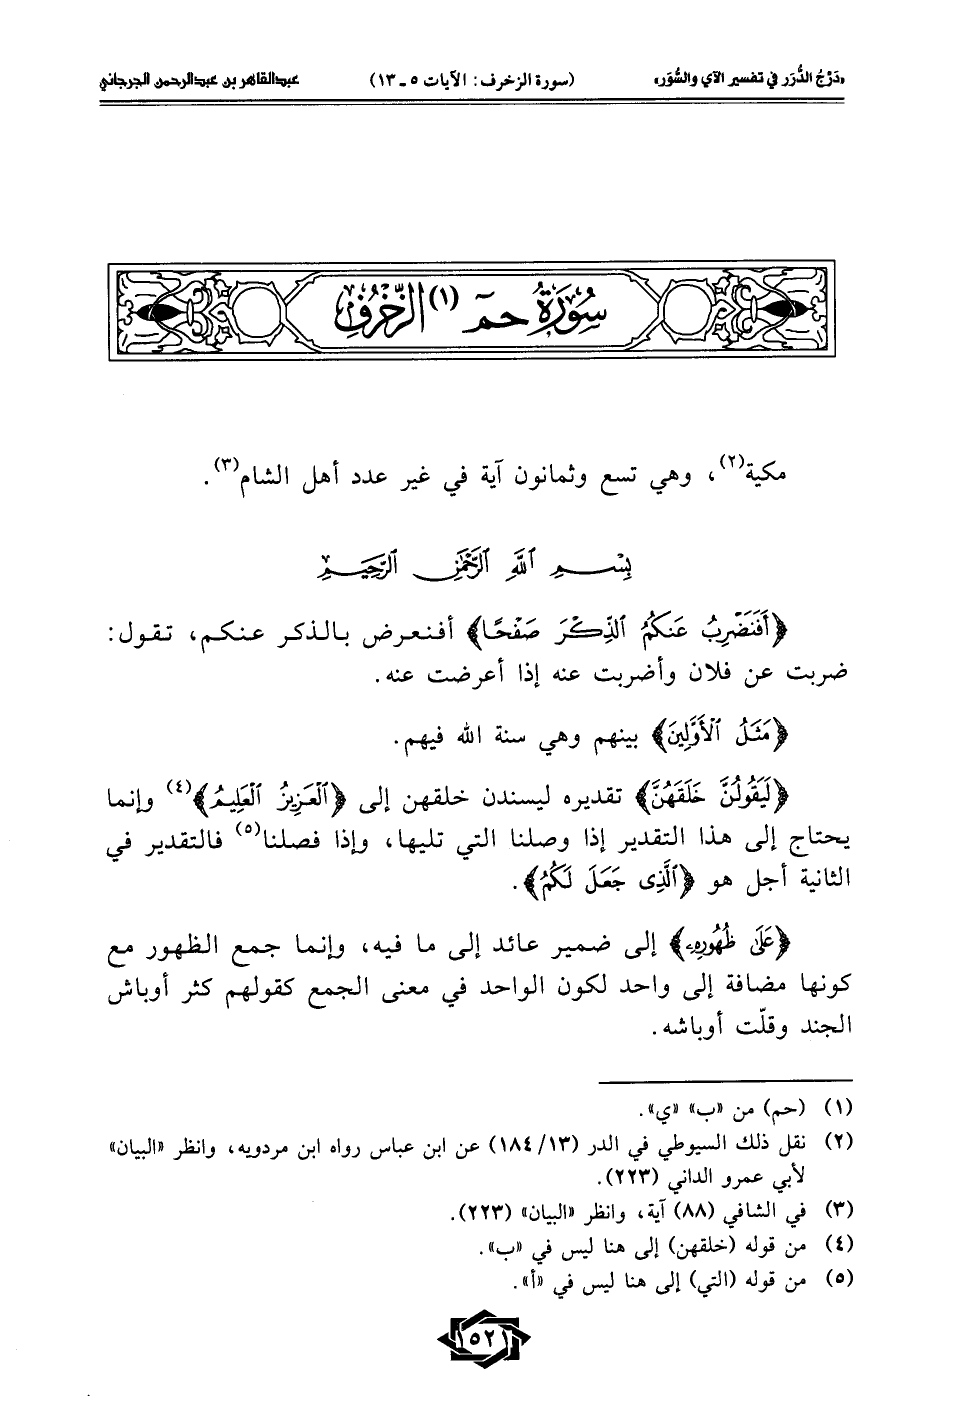 «دَرْجُ الدُّرَر في تفسير الآي والسُّوَر» (سورة الزخرف: الآيات ٥ ـ ١٣) عبدالقاهر بن عبدالرحمن الجرجاني
سُورَةُ حمٓ (١) الزُّخْرُفِ
مكية(٢)، وهي تسع وثمانون آية في غير عدد أهل الشام(٣).
بِسْمِ ٱللَّهِ ٱلرَّحْمَٰنِ ٱلرَّحِيمِ
﴿أَفَنَضْرِبُ عَنكُمُ ٱلذِّكْرَ صَفْحًا﴾ أفنعرض بالذكر عنكم، تقول:
ضربت عن فلان وأضربت عنه إذا أعرضت عنه.
﴿مَثَلُ ٱلْأَوَّلِينَ﴾ بينهم وهي سنة الله فيهم.
﴿لَيَقُولُنَّ خَلَقَهُنَّ﴾ تقديره ليسندن خلقهن إلى ﴿ٱلْعَزِيزُ ٱلْعَلِيمُ﴾(٤) وإنما
يحتاج إلى هذا التقدير إذا وصلنا التي تليها، وإذا فصلنا(٥) فالتقدير في
الثانية أجل هو ﴿ٱلَّذِى جَعَلَ لَكُمُ﴾.
﴿عَلَىٰ ظُهُورِهِۦ﴾ إلى ضمير عائد إلى ما فيه، وإنما جمع الظهور مع
كونها مضافة إلى واحد لكون الواحد في معنى الجمع كقولهم كثر أوباش
الجند وقلّت أوباشه.
(١) (حم) من «ب» «ي».
(٢) نقل ذلك السيوطي في الدر (١٣/ ١٨٤) عن ابن عباس رواه ابن مردويه، وانظر «البيان»
لأبي عمرو الداني (٢٢٣).
(٣) في الشافي (٨٨) آية، وانظر «البيان» (٢٢٣).
(٤) من قوله (خلقهن) إلى هنا ليس في «ب».
(٥) من قوله (التي) إلى هنا ليس في «أ».
١٥٢١